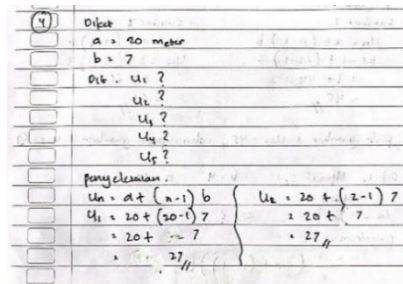 4
Diket
a = 20 meter
b = 7
Dit. U1 ?
U2 ?
U3 ?
U4 ?
U5 ?
penyelesaian
Un = a + (n-1) b
U1 = 20 + (20-1) 7
= 20 + 7
= 27 //
U2 = 20 + (2-1) 7
= 20 + 7
= 27 //